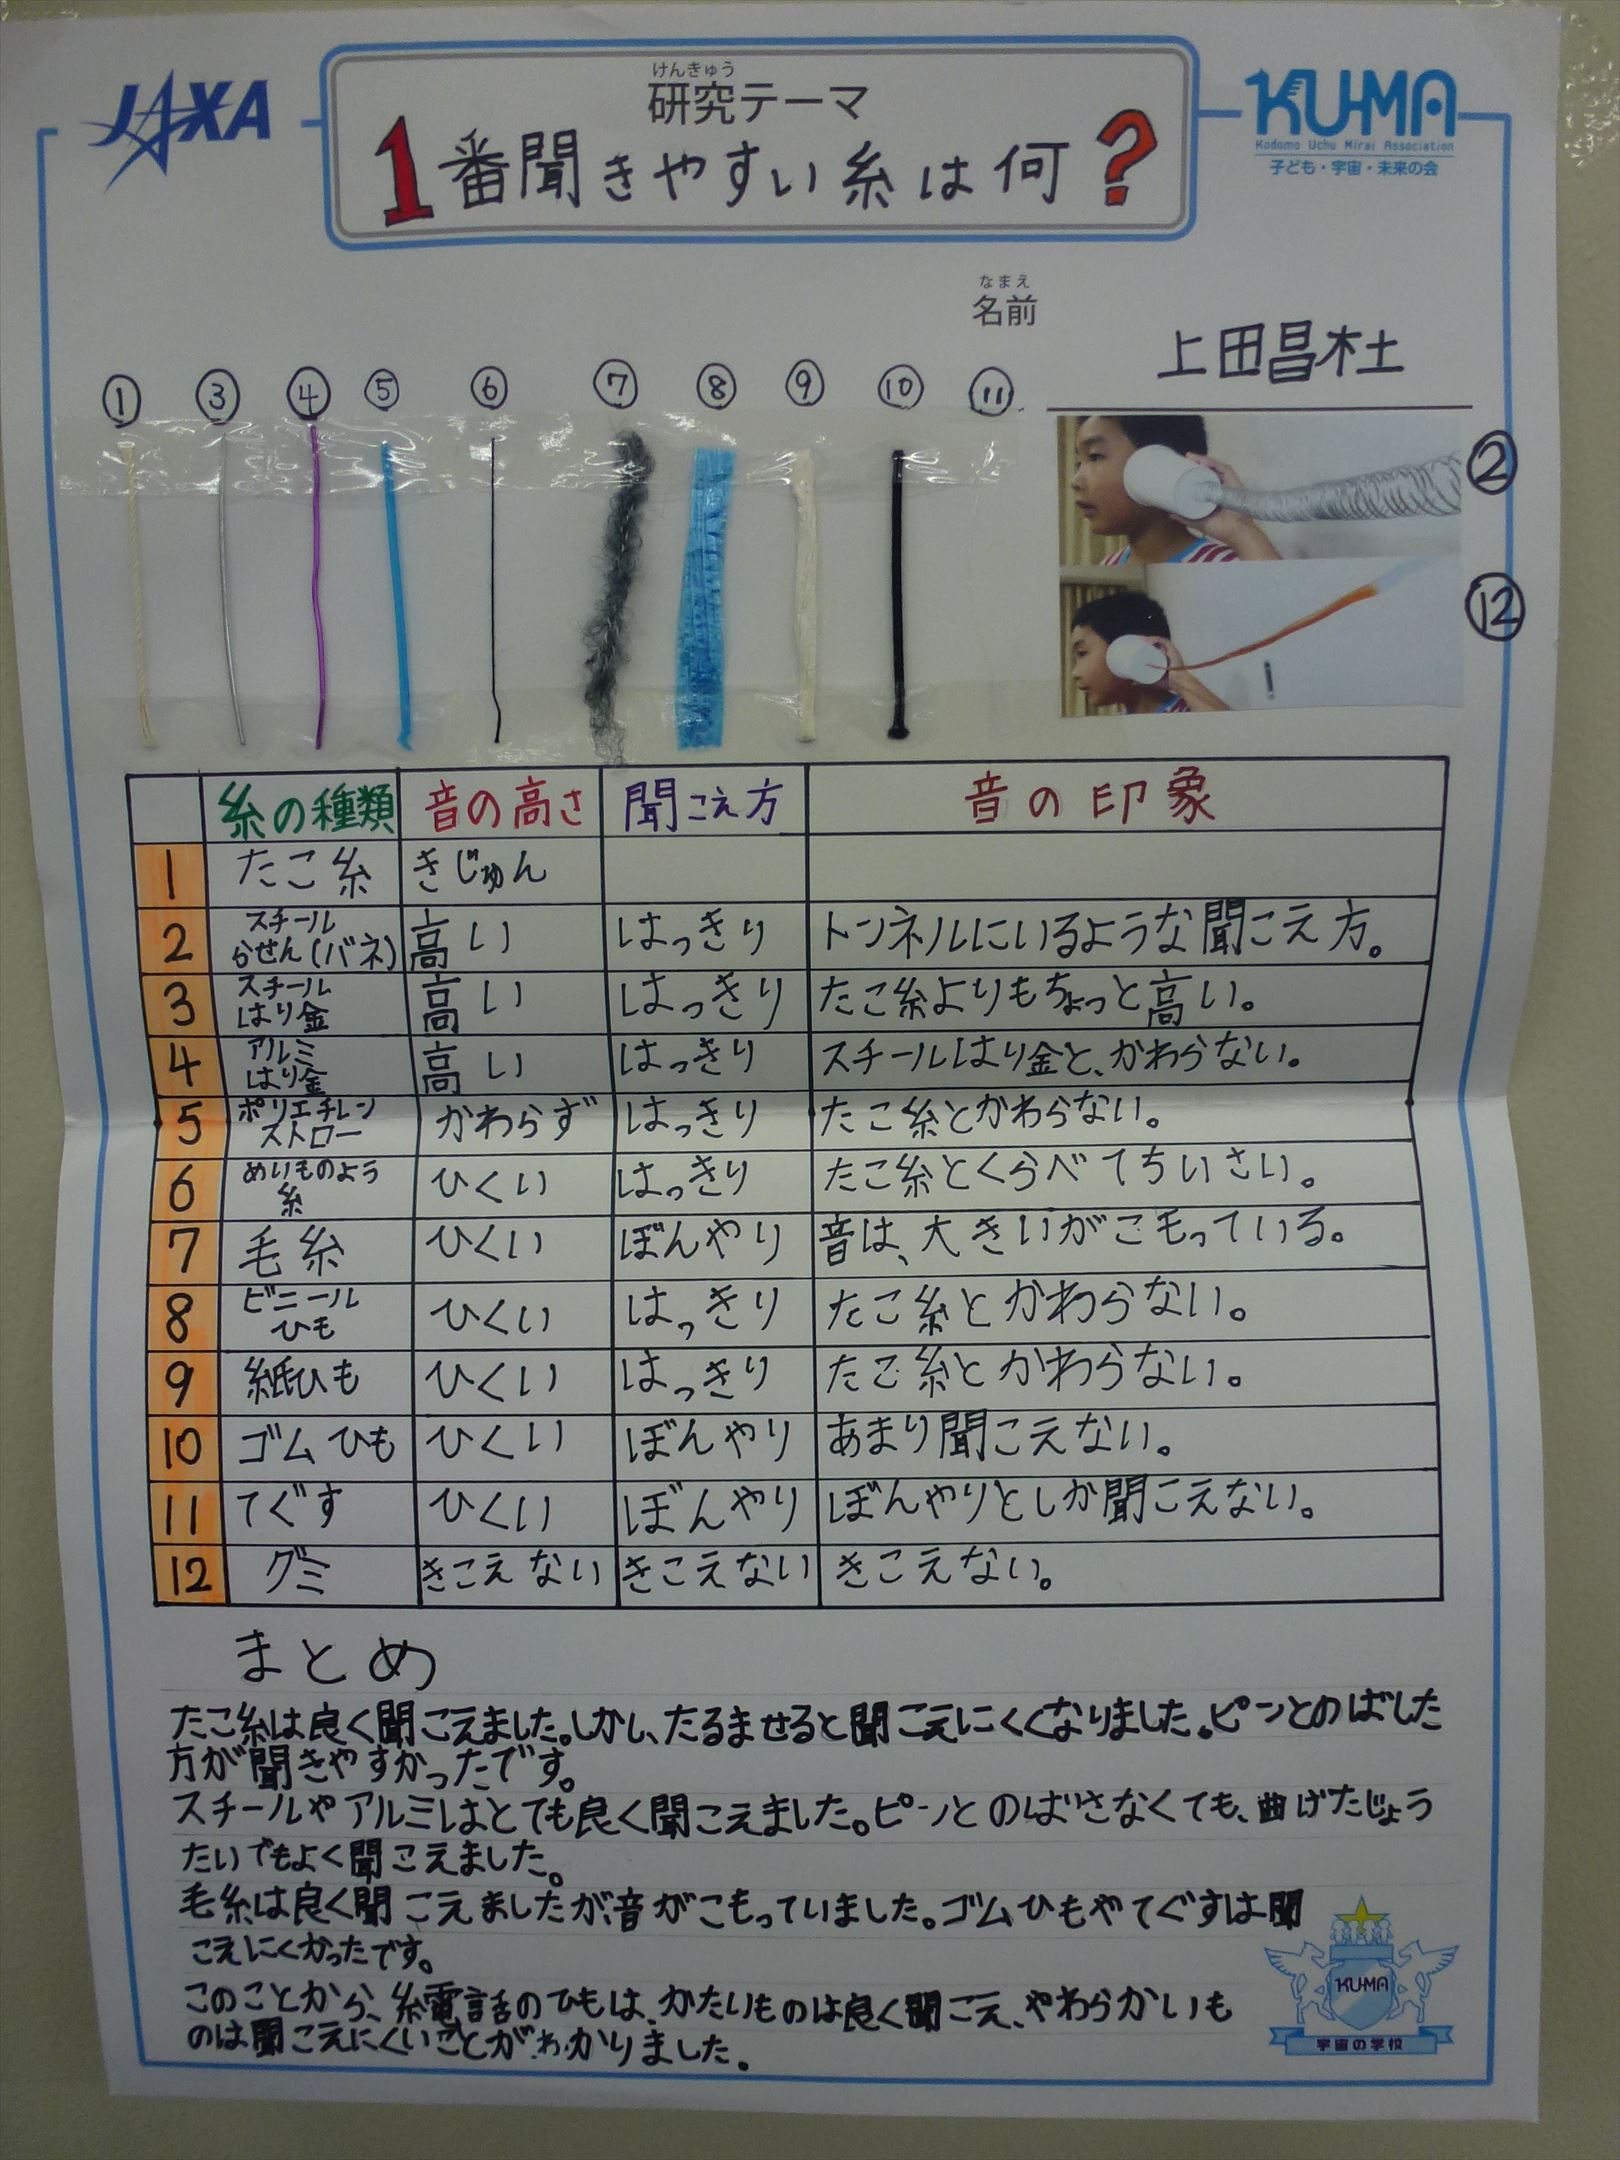 JAXA
けんきゅう
研究テーマ
1番聞きやすい糸は何?
KUMA
Kodomo Uchu Mirai Association
子ども・宇宙・未来の会
なまえ
名前
上田昌杜
① ③ ④ ⑤ ⑥ ⑦ ⑧ ⑨ ⑩ ⑪
②
⑫
糸の種類 音の高さ 聞こえ方 音の印象
1 たこ糸 きじゅん
2 スチールらせん(バネ) 高い はっきり トンネルにいるような聞こえ方。
3 スチールはり金 高い はっきり たこ糸よりもちょっと高い。
4 アルミはり金 高い はっきり スチールはり金と、かわらない。
5 ポリエチレンストロー かわらず はっきり たこ糸とかわらない。
6 めいものよう糸 ひくい はっきり たこ糸とくらべてちいさい。
7 毛糸 ひくい ぼんやり 音は、大きいがこもっている。
8 ビニールひも ひくい はっきり たこ糸とかわらない。
9 紙ひも ひくい はっきり たこ糸とかわらない。
10 ゴムひも ひくい ぼんやり あまり聞こえない。
11 てぐす ひくい ぼんやり ぼんやりとしか聞こえない。
12 グミ きこえない きこえない きこえない。
まとめ
たこ糸は良く聞こえました。しかし、たるませると聞こえにくくなりました。ピンとのばした
方が聞きやすかったです。
スチールやアルミはとても良く聞こえました。ピンとのばさなくても、曲げたじょう
たいでもよく聞こえました。
毛糸は良く聞こえましたが、音がこもっていました。ゴムひもやてぐすは聞
こえにくかったです。
このことから、糸電話のひもは、かたいものは良く聞こえ、やわらかいも
のは聞こえにくいことがわかりました。
KUMA
宇宙の学校